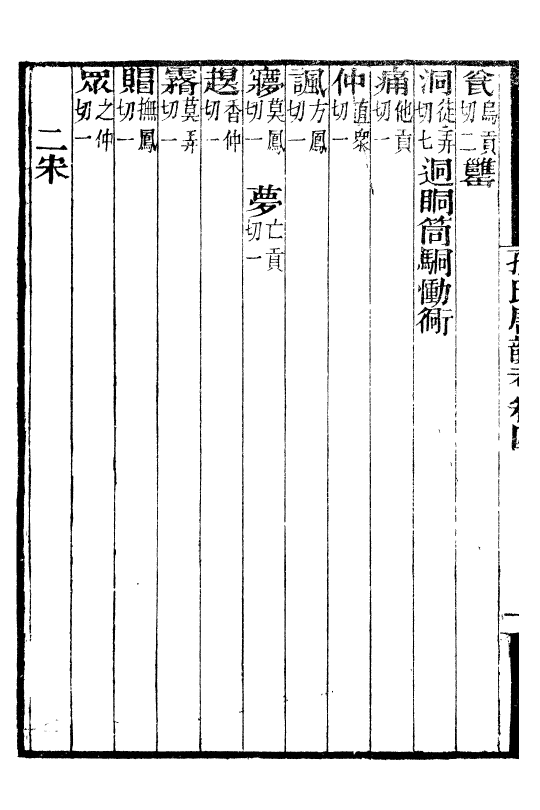 孫氏唐韻考卷四
瓮烏貢切二罋
洞徒弄切七迵眮筒駧慟衕
痛他貢切一
仲直眾切一
諷方鳳切一
㝱莫鳳切一 夢亡貢切一
香仲切一
霿莫弄切一
賵撫鳳切一
眾之仲切一
二宋